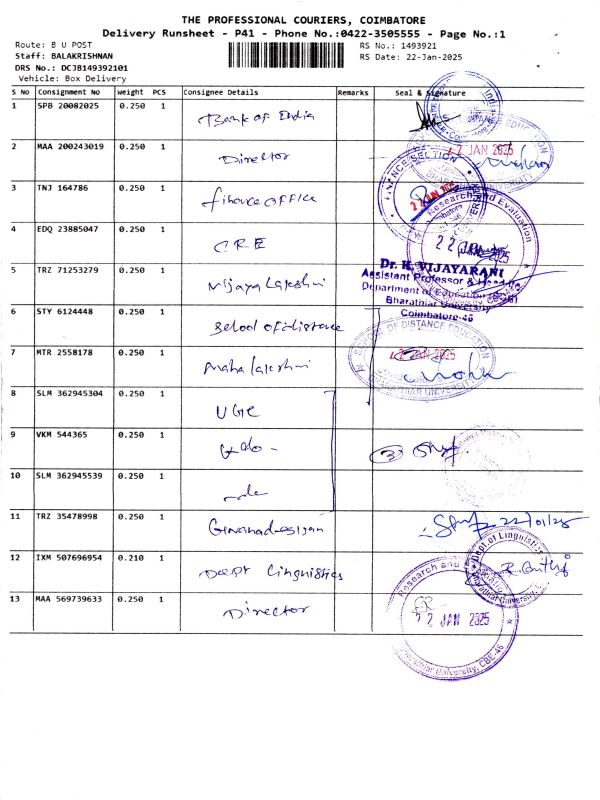 THE PROFESSIONAL COURIERS, COIMBATORE
Delivery Runsheet - P41 - Phone No.:0422-3505555 - Page No.:1
Route: B U POST
RS No.: 1493921
Staff: BALAKRISHNAN
RS Date: 22-Jan-2025
DRS No.: DCJB149392101
Vehicle: Box Delivery
S No Consignment No Weight PCS Consignee Details Remarks Seal & Signature
1 SPB 20082025 0.250 1 Bank of India
2 MAA 200243019 0.250 1 Director
2 JAN 2025
3 TNJ 164786 0.250 1 finance office
FINANCE SECTION
Research and Evaluation
4 EDQ 23885047 0.250 1 CRE
22 JAN 2025
5 TRZ 71253279 0.250 1 Vijaya Lakshmi
Dr. K. VIJAYARANI
Assistant Professor & Head
Department of Education
Bharathiar University
Coimbatore-46
6 STY 6124448 0.250 1 School of distance
SCHOOL OF DISTANCE EDUCATION
7 MTR 2558178 0.250 1 Maha lakshmi
JAN 2025
BHARATHIAR UNIVERSITY
8 SLM 362945304 0.250 1 UGC
9 VKM 544365 0.250 1
3
10 SLM 362945539 0.250 1
11 TRZ 35478998 0.250 1
22/01/25
12 IXM 507696954 0.210 1 Dept Linguistics
Dept of Linguistics
13 MAA 569739633 0.250 1 Director
Research and
22 JAN 2025
Bharathiar University, CBE-46